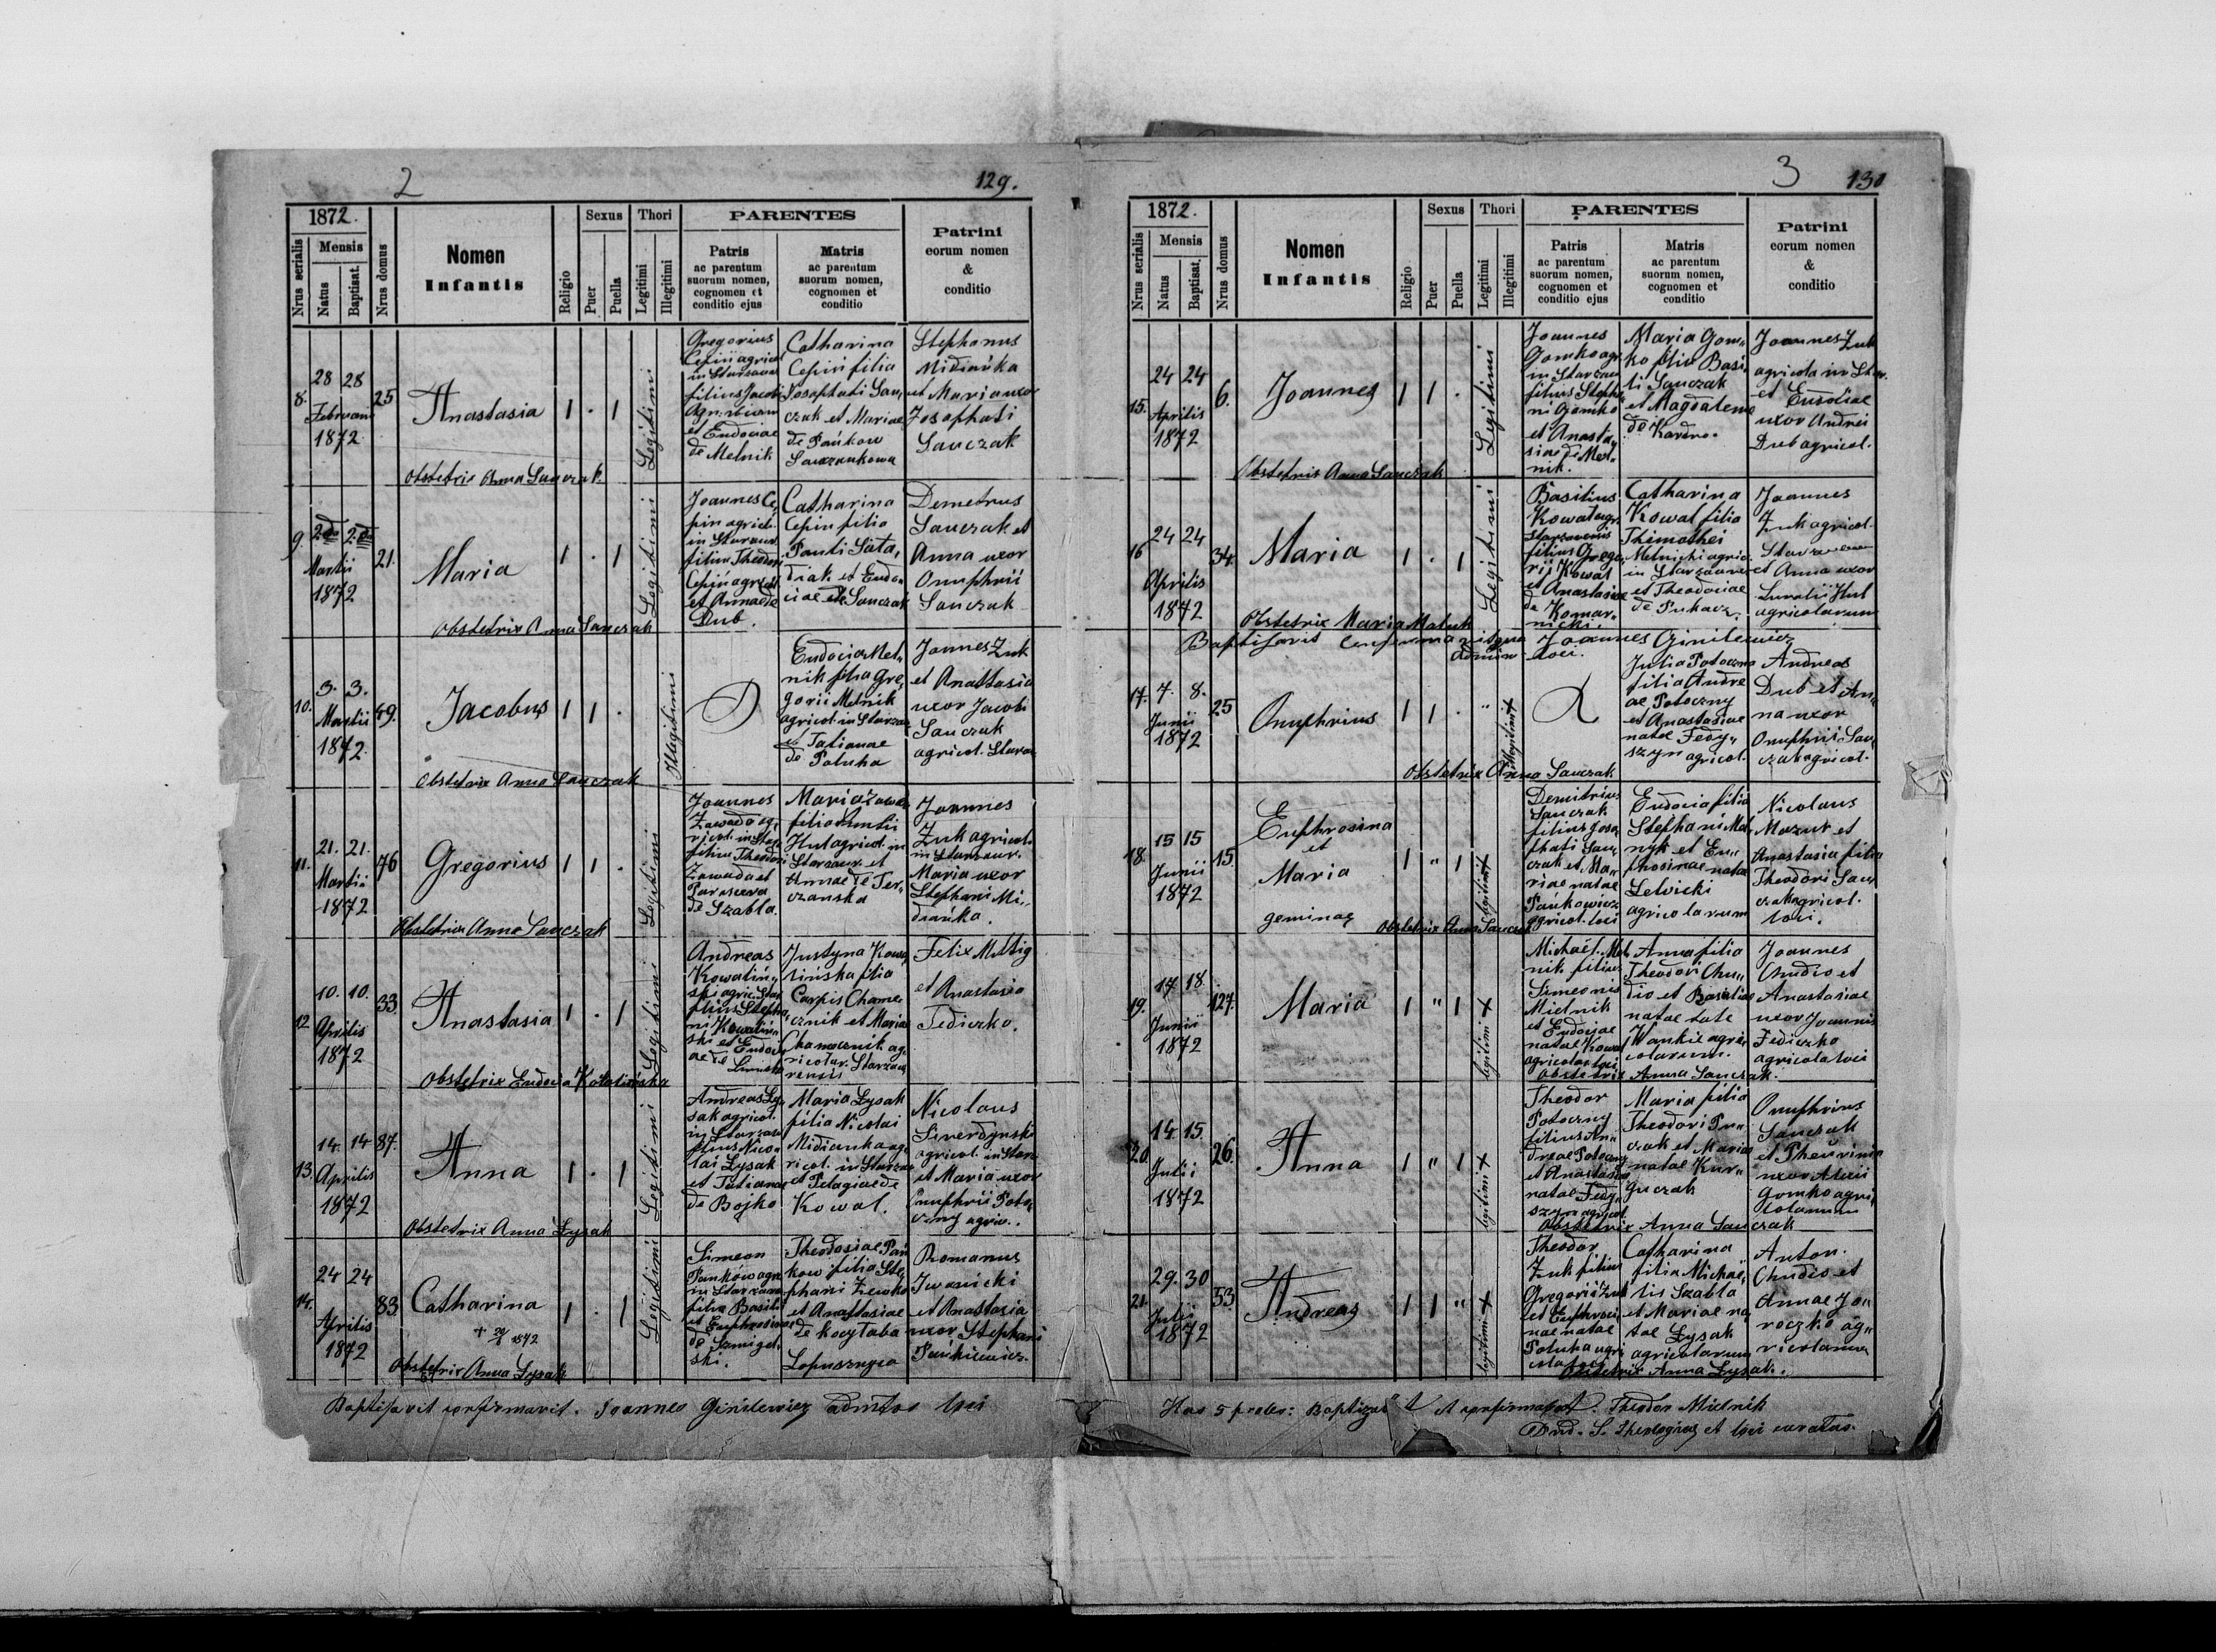 2
129.
1872.
Nrus serialis
Mensis
Natus
Baptisat.
Nrus domus
Nomen
Infantis
Religio
Sexus
Puer
Puella
Thori
Legitimi
Illegitimi
PARENTES
Patris
ac parentum
suorum nomen,
cognomen et
conditio ejus
Matris
ac parentum
suorum nomen,
cognomen et
conditio
Patrini
eorum nomen
&
conditio
8.
28 28
Februarii
1872
25
Anastasia
1 . 1
Legitimi
Gregorius
Cepiń agricol
in Starzawa
filius Jacobi
et Eudociae
de Melnik
Catharina
Cepiń filia
Josaphati Sau,
czak et Mariae
de Pańkow
Stephanus
Midiańka
et Maria uxor
Josaphati
Sauczak
Obstetrix Anna Sauczak
9.
2da 2da
Martii
1872
21.
Maria
1 . 1
Legitimi
Joannes Ce,
pin agricol.
in Starzaw.
filius Theodori
Cepiń agricol.
et Annae de
Dub.
Catharina
Cepin filia
Pauli
diak et Eudo,
ciae de Sauczak
Demetrus
Sauczak et
Anna uxor
Onuphrii
Sauczak
Obstetrix Anna Sauczak
10.
3. 3.
Martii
1872.
49.
Jacobus
1 1 .
Illegitimi
Eudocia Mel,
nik filia Gre,
gorii Melnik
agricol. in Starzaw
et Tatianae
de Poluha
Joannes Zuk
et Anastasia
uxor Jacobi
Sauczak
agricol. Starzaw
Obstetrix Anna Sauczak
11.
21. 21.
Martii
1872
76
Gregorius
1 1 .
Legitimi
Joannes
Zawada ag,
ricol. in Starz
filius Theodori
Zawada et
Parasceva
de Szabla.
Maria Zawad
Hul agricol. in
Starzaw. et
Annae de Ter,
czanska
Joannes
Zuk agricol.
in Starzaw.
Maria uxor
Stephani Mi,,
diańka.
Obstetrix Anna Sauczak
12
10. 10.
Aprilis
1872
33.
Anastasia
1 . 1
Legitimi
Andreas
Kowaliń,,
ski agric. Star
filius Stepha,
ni Kowaliń,
ski et Eudoci
ae de
Justyna Kowa,
lińska filia
Carpis Chame
cznik et Maria
Chamecznik ag,
ricolar. Starzaw
rensis
Felix Mettig
et Anastasia
Fediczko.
Obstetrix Eudocia Kotalińska
13.
14. 14
Aprilis
1872
87.
Anna
1 . 1
Legitimi
Andreas Ły,
sak agricol.
in Starzaw
filius Nico,
lai Łysak
et Tatianae
de Bojko
Maria Łysak
filia Nicolai
Midianka ag,
ricol. in Starzaw
et Pelagiae de
Kowal.
Nicolaus
Siverdynski
agricol. in Starz
et Maria uxor
Onuphrii Poto,
czny agric.
Obstetrix Anna Łysak
14.
24 24
Aprilis
1872
83
Catharina
1 . 1
Legitimi
Simeon
Pańków agr.
in Starzawa
filius Basili
et Euphrosinae
de Szmigel,
ski.
Theodosiae Pań
kow filia Ste,
phani
et Anastasiae
de
Romanus
Jwanicki
et Anastasia
uxor Stephani
Pankiewicz.
Obstetrix Anna Łysak
Baptisavit confirmavit. Joannes Ginilewicz admtor loci
3
130
1872.
Nrus serialis
Mensis
Natus
Baptisat.
Nrus domus
Nomen
Infantis
Religio
Sexus
Puer
Puella
Thori
Legitimi
Illegitimi
PARENTES
Patris
ac parentum
suorum nomen,
cognomen et
conditio ejus
Matris
ac parentum
suorum nomen,
cognomen et
conditio
Patrini
eorum nomen
&
conditio
15.
24 24
Aprilis
1872
6.
Joannes
1 1 .
Legitimi
Joannes
Gomko agr.
in Starzaw
filius Stepha
ni Gomko
et Anasta,
siae de Mel,
nik.
Maria Gom,
ko filia Basi,
li Sauczak
et Magdalenae
de
Joannes Zuk
agricola in Star.
et Eudociae
uxor Andrei
Dub agricol.
Obstetrix Anna Sauczak
16
24 24
Aprilis
1872
34.
Maria
1 . 1
Legitimi
Basilius
Kowal agr.
Starzawensis
filius Grego,
rii Kowal
et Anastasiae
de Komar,
nicki.
Catharina
Kowal filia
Thimothei
Melnicki agric
in Starzawa
et Theodociae
de Pukacz.
Joannes
Zuk agricol.
Starzawa
et Anna uxor
Hul
agricolarum
Obstetrix Maria Maluk
Baptisavit Confirmavitque Joannes Ginilewicz
Admin. loci.
17.
7. 8.
Junii
1872
25
Onuphrius
1 1 . "
Illegitimi +
Julia Potoczna
filia Andre
ae Potoczny
et Anastasiae
natae Fedy,,
szyn agricol.
Andreas
Dub et An,,
na uxor
Onuphrii Sau,
czak agricol.
Obstetrix Anna Sauczak
18.
15 15
Junii
1872
15.
Euphrosina
et
Maria
geminae
1 " 1
legitimi +
Demitrius
Sauczak
filius Josa,
phati Sau,
czak et Ma,,
riae natae
Pańkowicz
agricol. loci
Eudocia filia
Stephani Mel,
nyk et Eu,,
phrosinae natae
Lewicki
agricolarum
Nicolaus
Mazur et
Anastasia filia
Theodori Sau,
czak agricol.
loci.
Obstetrix Anna Sauczak
19.
17. 18.
Junii
1872
127.
Maria
1 " 1
legitimi +
Michael. Mel,
nik filius
Simeonis
Mielnik
et Eudociae
natae Kowal
agricolae loci
Anna filia
Theodori Chu,,
dio et Basilia
natae tate
agri,
colarum.
Joannes
Chudio et
Anastasiae
uxor Joannis
Fediczko
agricola loci
Obstetrix Anna Sauczak.
20.
14. 15.
Julii
1872
26.
Anna
1 " 1
legitimi +
Theodor
Potoczny
filius An,,
dreae Potoczny
et Anastasiae
natae Fedy,
szyn agricol.
Maria filia
Theodori Pu,,
czak et Mariae
natae Kur,,
guczak
Onuphrius
Sauczak
et
uxor Alexii
Gomko agri,
colarum
Obstetrix Anna Sauczak
21.
29. 30
Julii
1872
53
Andreas
1 1 "
legitimi +
Theodor
Zuk filius
Gregorii Zuk
et Euphrosi
nae natae
Poluha agri
colae
Catharina
filia Michae,
lis Szabla
et Mariae na
tae Łysak
agricolarum
Anton.
Chudio et
Annae Jo,,
roczko ag,,
ricolarum
Obstetrix Anna Łysak.
Hos 5 proles: Baptizavit et confirmavit. Theodor Mielnik
S. Theologiae et loci curatus.